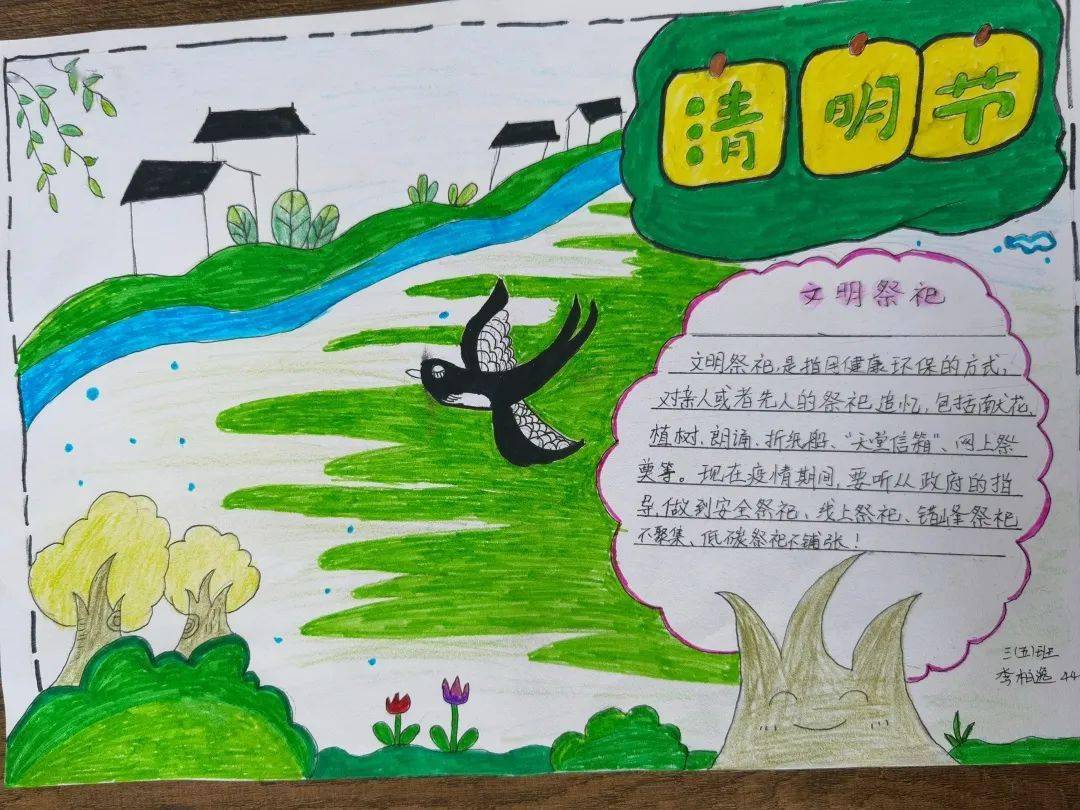 清明节
文明祭祀
文明祭祀,是指用健康环保的方式,
对亲人或者先人的祭祀追忆,包括献花,
植树、朗诵、折纸船、“天堂信箱”、网上祭
奠等。现在疫情期间,要听从政府的指
导,做到安全祭祀、线上祭祀、错峰祭祀
不聚集、低碳祭祀不铺张!
三(五)班
李柏逸 44